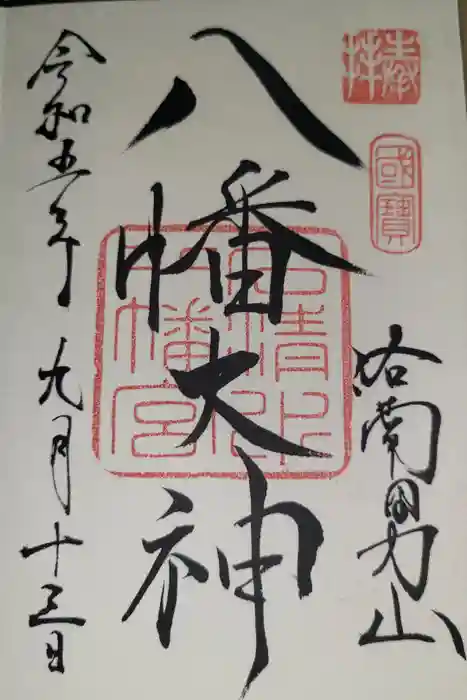 奉拝
國寶
洛南男山
八幡大神
石清水
八幡宮
令和五年 九月十三日